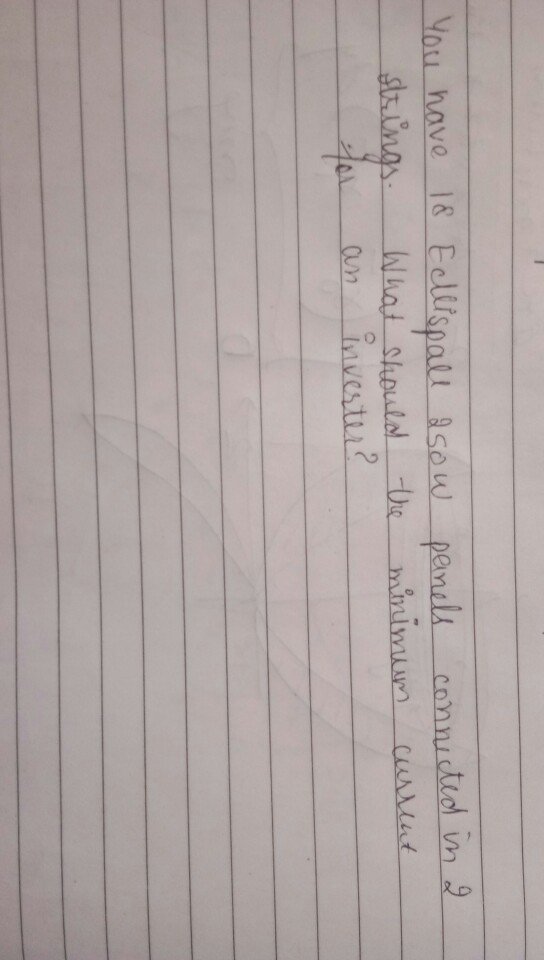 You have 18 Ecllispall 250W panels connected in 2
strings. What should the minimum current
for an inverter?